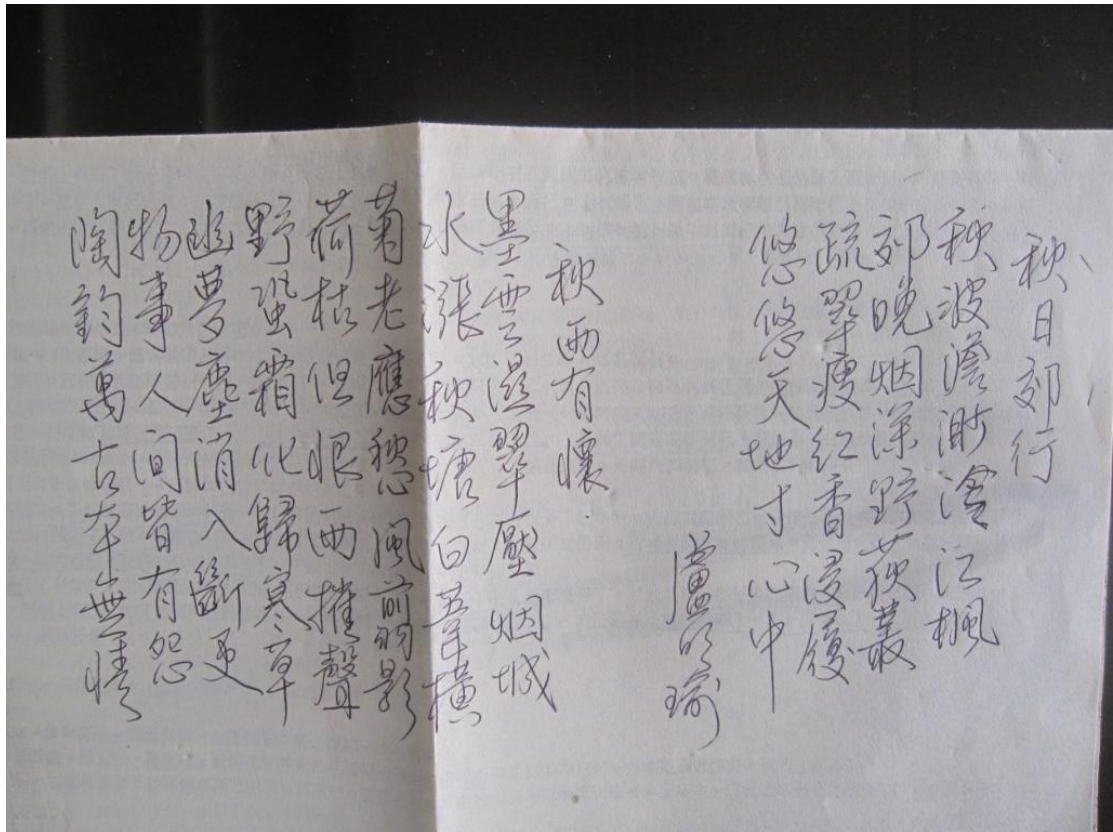 秋日郊行
秋波澹渺滄江楓
郊晚烟深野荻叢
疏翠瘦红香浸履
悠悠天地寸心中
盧明瑜
秋雨有懷
墨雲濕翠壓烟城
水漲秋塘白葦橫
菊老應愁風前影
荷枯但恨雨摧聲
野蛩霜化歸寒草
幽夢塵消入斷更
物事人间皆有怨
陶鈞萬古本無情